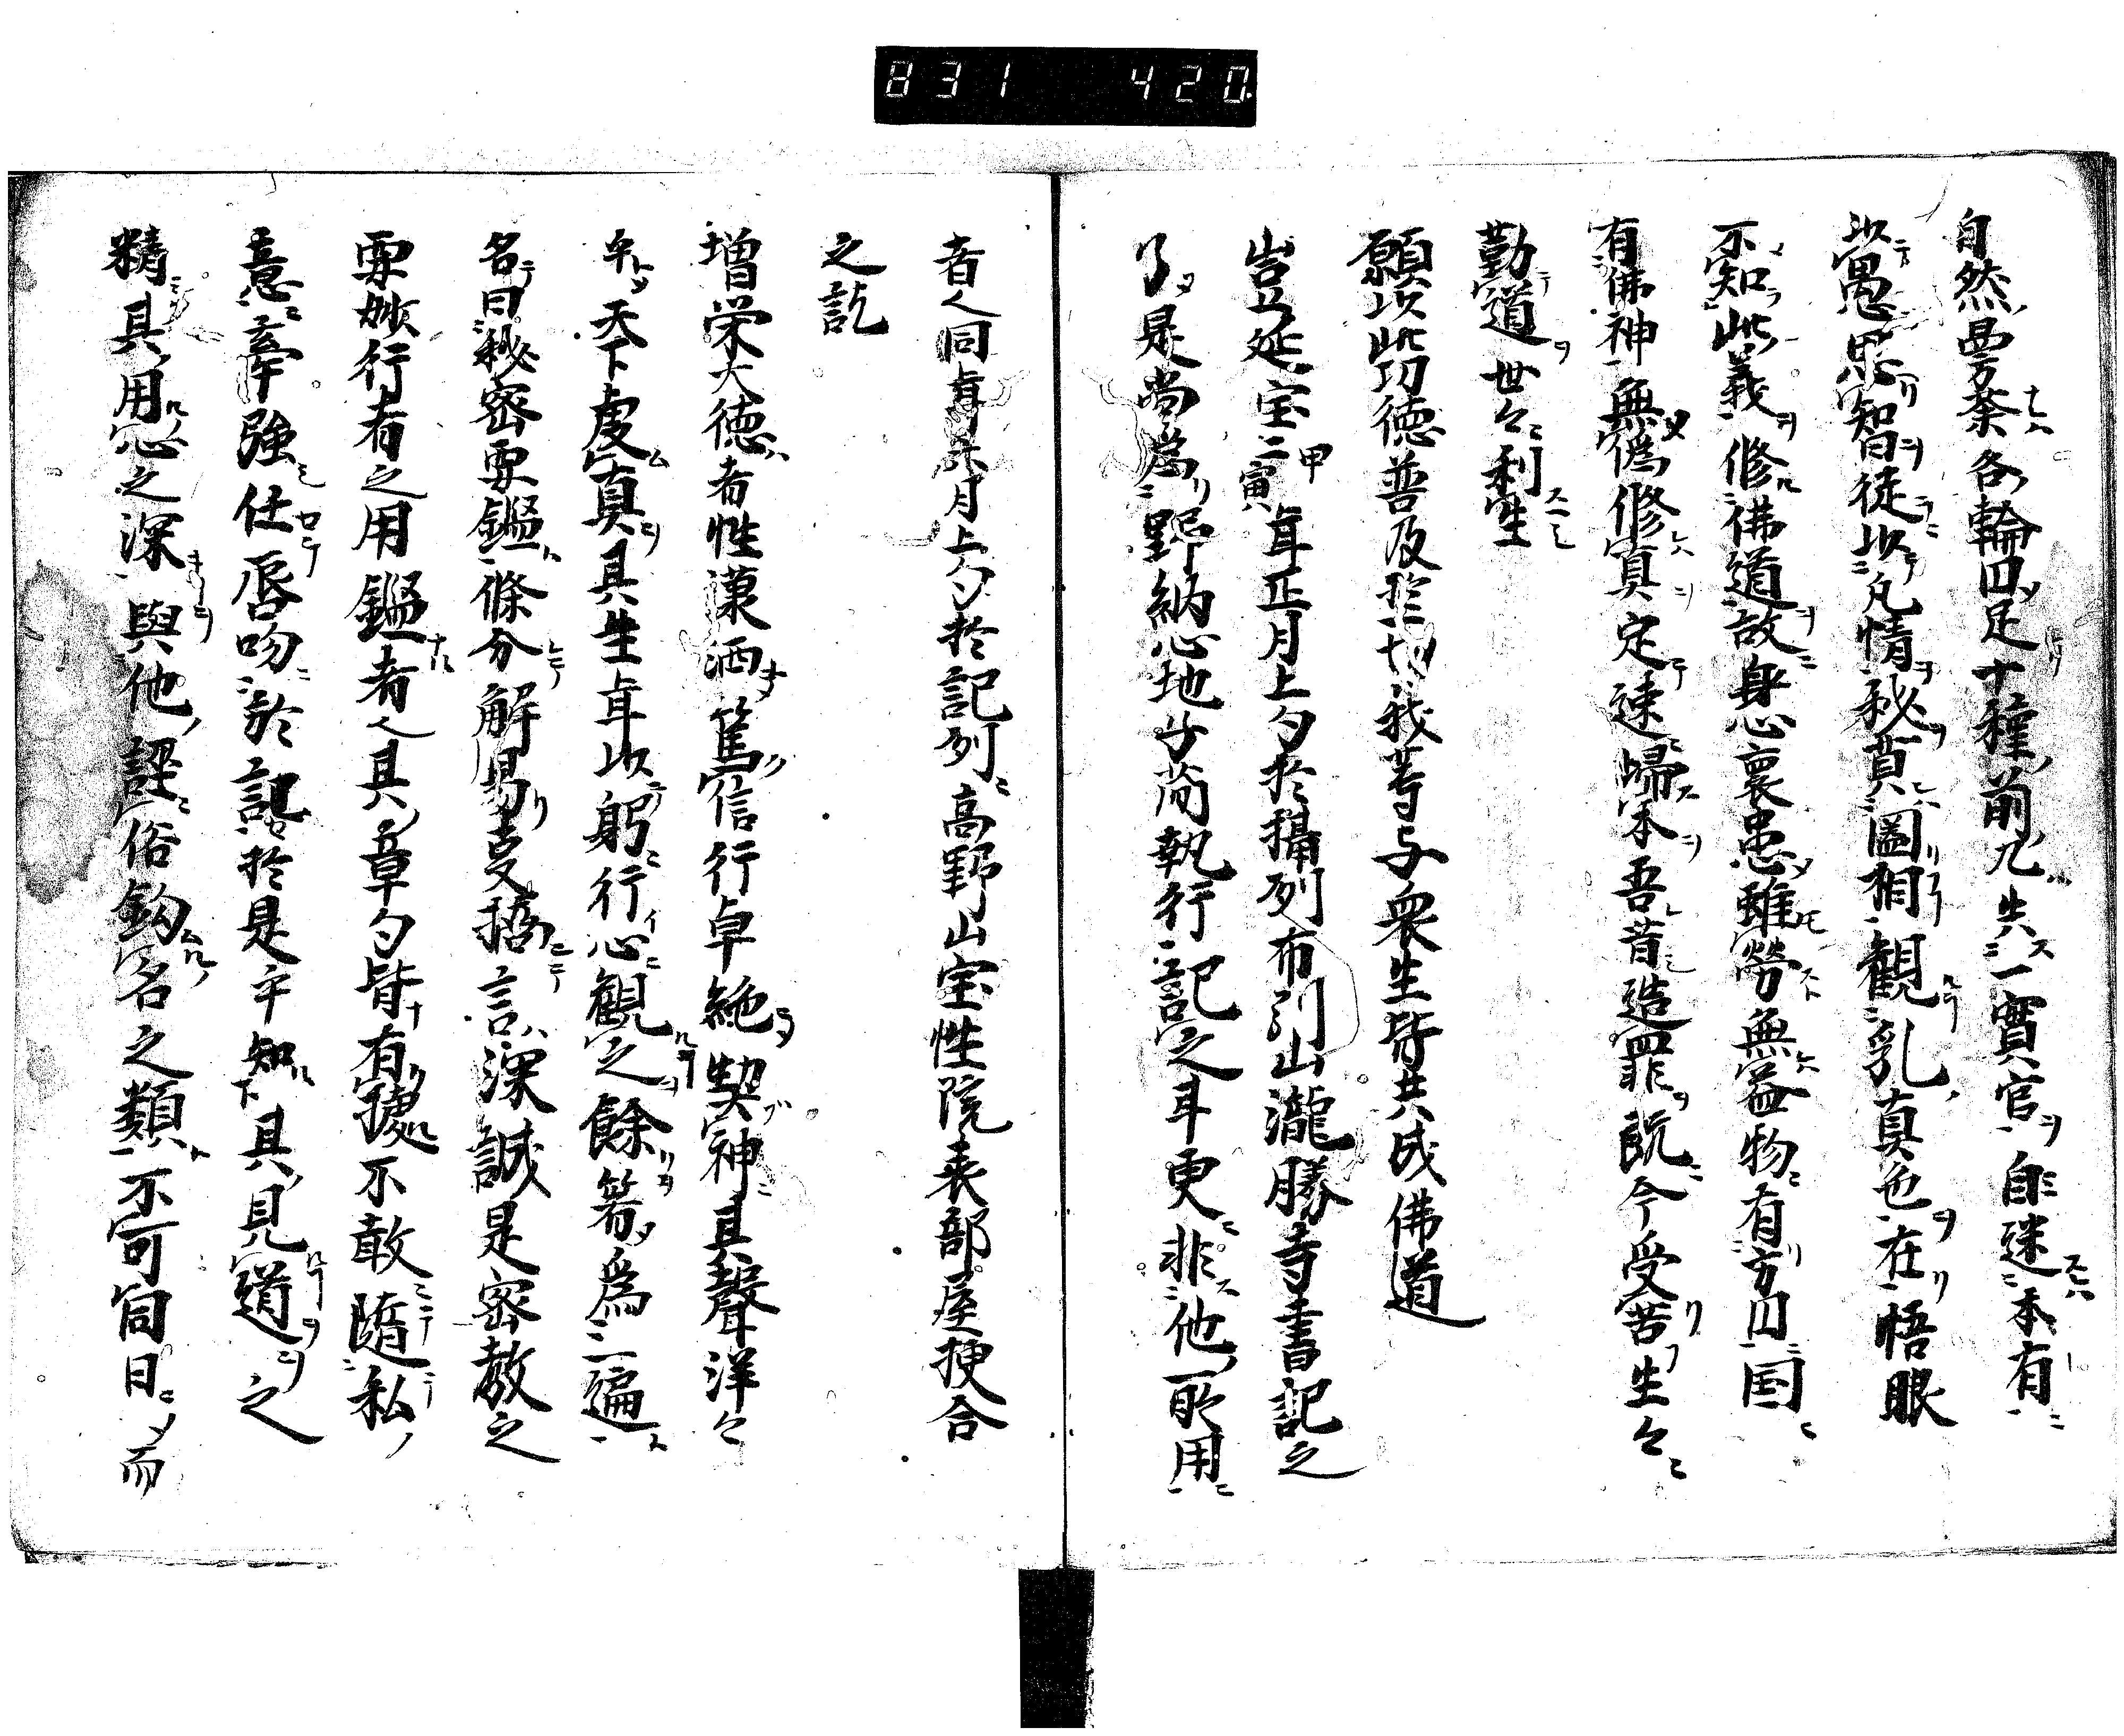 831 420
自然曼荼各輪円足十種前九失一實官自迷本有
以愚思智徒以凡情秘莫圖相觀乳真色在悟眼
不知此義修佛道故身心裏患雖勞無益物有方円国
有佛神無偽修真定速歸本吾昔造罪既今受苦生々
勤道世々利生
願以此功徳普及於一切我等与衆生皆共成佛道
豈延宝二甲寅年正月上旬於攝列布引山瀧勝寺書記之
了是尚為野納心地少蕳執行記之耳更非他所用
者也同年六月上旬於記列高野山宝性院表部屋挍合
之訖
増栄大徳者性謙洒篤信行卓絶契神其聲洋々
乎天下虔真具生年以躬行心觀之餘著為二遍
名曰秘密要鑑條分解易支稿言深誠是密教之
要妙行者之用鑑者也其章句皆有據不敢随私
意牽強仕唇吻於記於是乎知其見道之
精具用心之深與他誣俗鈎名之類不可同日而